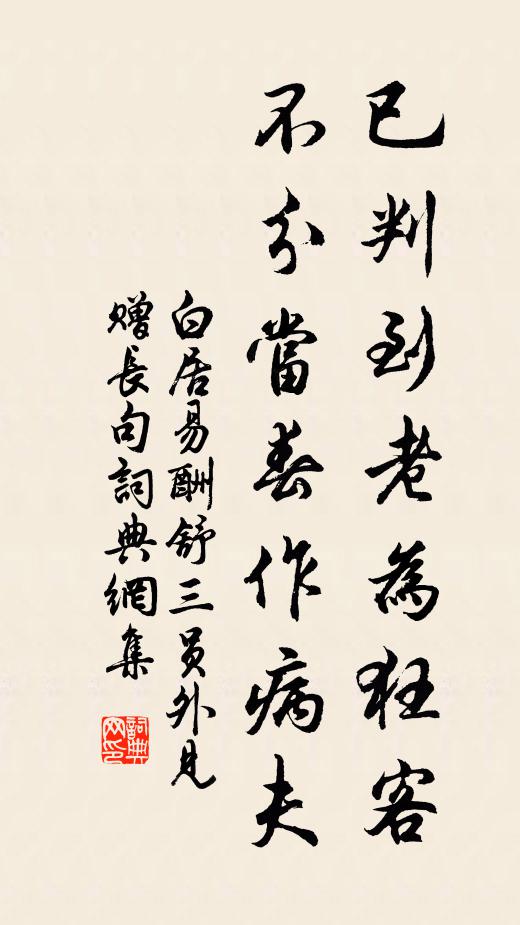 已判到老為狂客
不分當春作病夫
白居易酬舒三員外見
贈長句詞典網集
詞典
网印